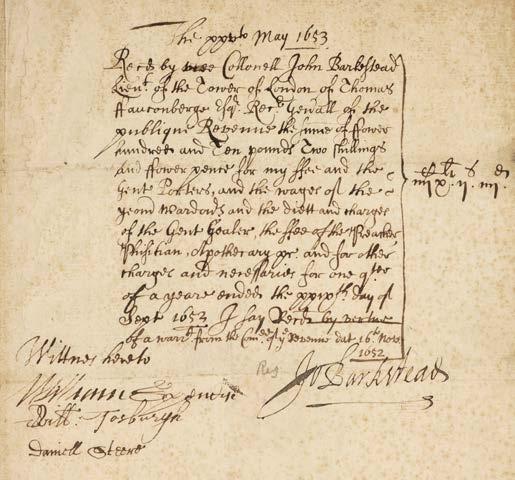 The xxvth May 1653
Recd by mee Collonell John Barkstead
Lieut. of the Tower of London of Thomas
Fauconberge Esqr. Recr. Genrall of the
publique Revenue the sume of ffower
hundred and Ten pounds Two shillings
and ffower pence for my ffee and the
Gent Porters, and the wages of the
yeomd Wardours and the diett and charges
of the Gent Gealer the ffee of the Preacher
Phisitian, Apothecary &c and for other
charges and necessaries for one qter
of a yeare ended the xxixth day of
Sept 1652 I say Recd by vertue
of a warrt. from the Comee of ye Revenue dat 16th Novr
1652
iiiic x li. ii s. iiii d
Wittnes hereto
William
Will:
Daniell Steere
Jo Barkstead